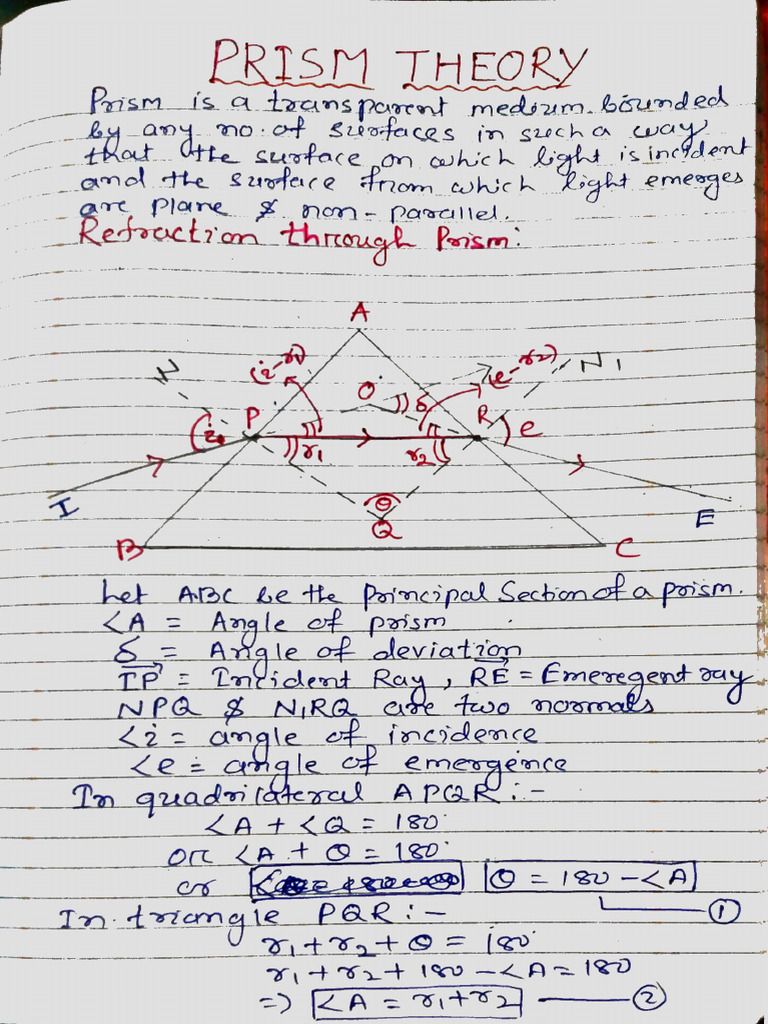 PRISM THEORY
Prism is a transparent medium bounded
by any no. of surfaces in such a way
that the surface on which light is incident
and the surface from which light emerges
are plane & non-parallel.
Refraction through Prism:
A
(i-r1)
(e-r2)
N
N1
O
δ
P
R
i
r1
r2
e
θ
Q
I
E
B
C
Let ABC be the Principal Section of a prism.
<A = Angle of prism
δ = Angle of deviation
IP = Incident Ray, RE = Emeregent ray
NPQ & N1RQ are two normals
<i = angle of incidence
<e = angle of emergence
In quadrilateral APQR :-
<A + <Q = 180°
or <A + θ = 180°
or θ = 180 - <A
①
In triangle PQR :-
r1 + r2 + θ = 180°
r1 + r2 + 180 - <A = 180
=> <A = r1 + r2 ②